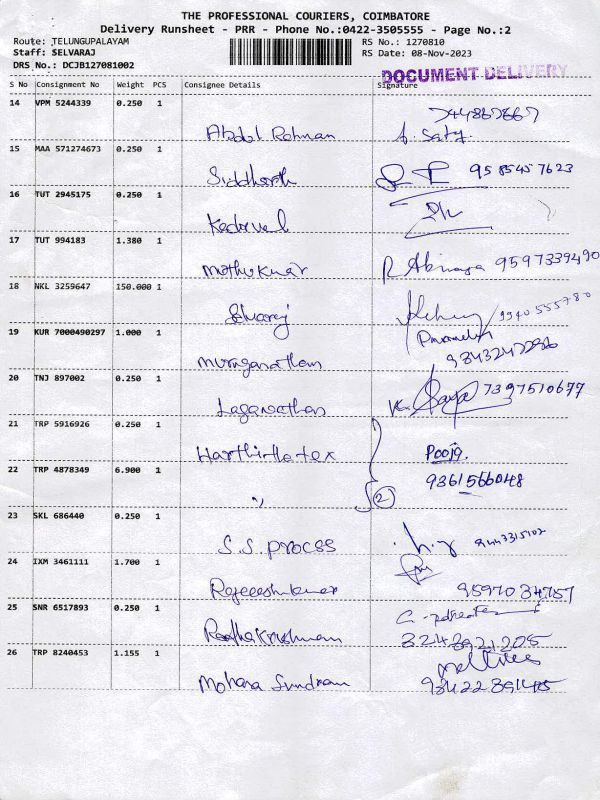 THE PROFESSIONAL COURIERS, COIMBATORE
Delivery Runsheet - PRR - Phone No.:0422-3505555 - Page No.:2
Route: TELUNGUPALAYAM
RS No.: 1270810
Staff: SELVARAJ
RS Date: 08-Nov-2023
DRS No.: DCJB127081002
DOCUMENT DELIVERY
S No Consignment No Weight PCS Consignee Details Signature
14 VPM 5244339 0.250 1
Abdul Rahman
15 MAA 571274673 0.250 1
Siddharth 9585457623
16 TUT 2945175 0.250 1
Kadirvel
17 TUT 994183 1.380 1
Mothukumar R Abinaya 9597339490
18 NKL 3259647 150.000 1
Selvaraj 9940555780
19 KUR 7000490297 1.000 1
Muruganatham
20 TNJ 897002 0.250 1
Laganathan 7397510677
21 TRP 5916926 0.250 1
Harthirtotex Pooja.
22 TRP 4878349 6.900 1
" 9361566048
2
23 SKL 686440 0.250 1
S.S. Process
24 IXM 3461111 1.700 1
Rajeeshkumar
25 SNR 6517893 0.250 1
Radhakrishnan
26 TRP 8240453 1.155 1
Mohana Sundram